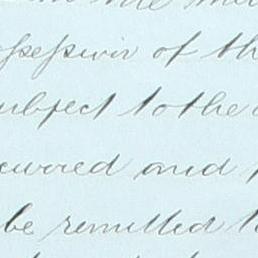 possession of th
subject to the
curred and
be remitted to